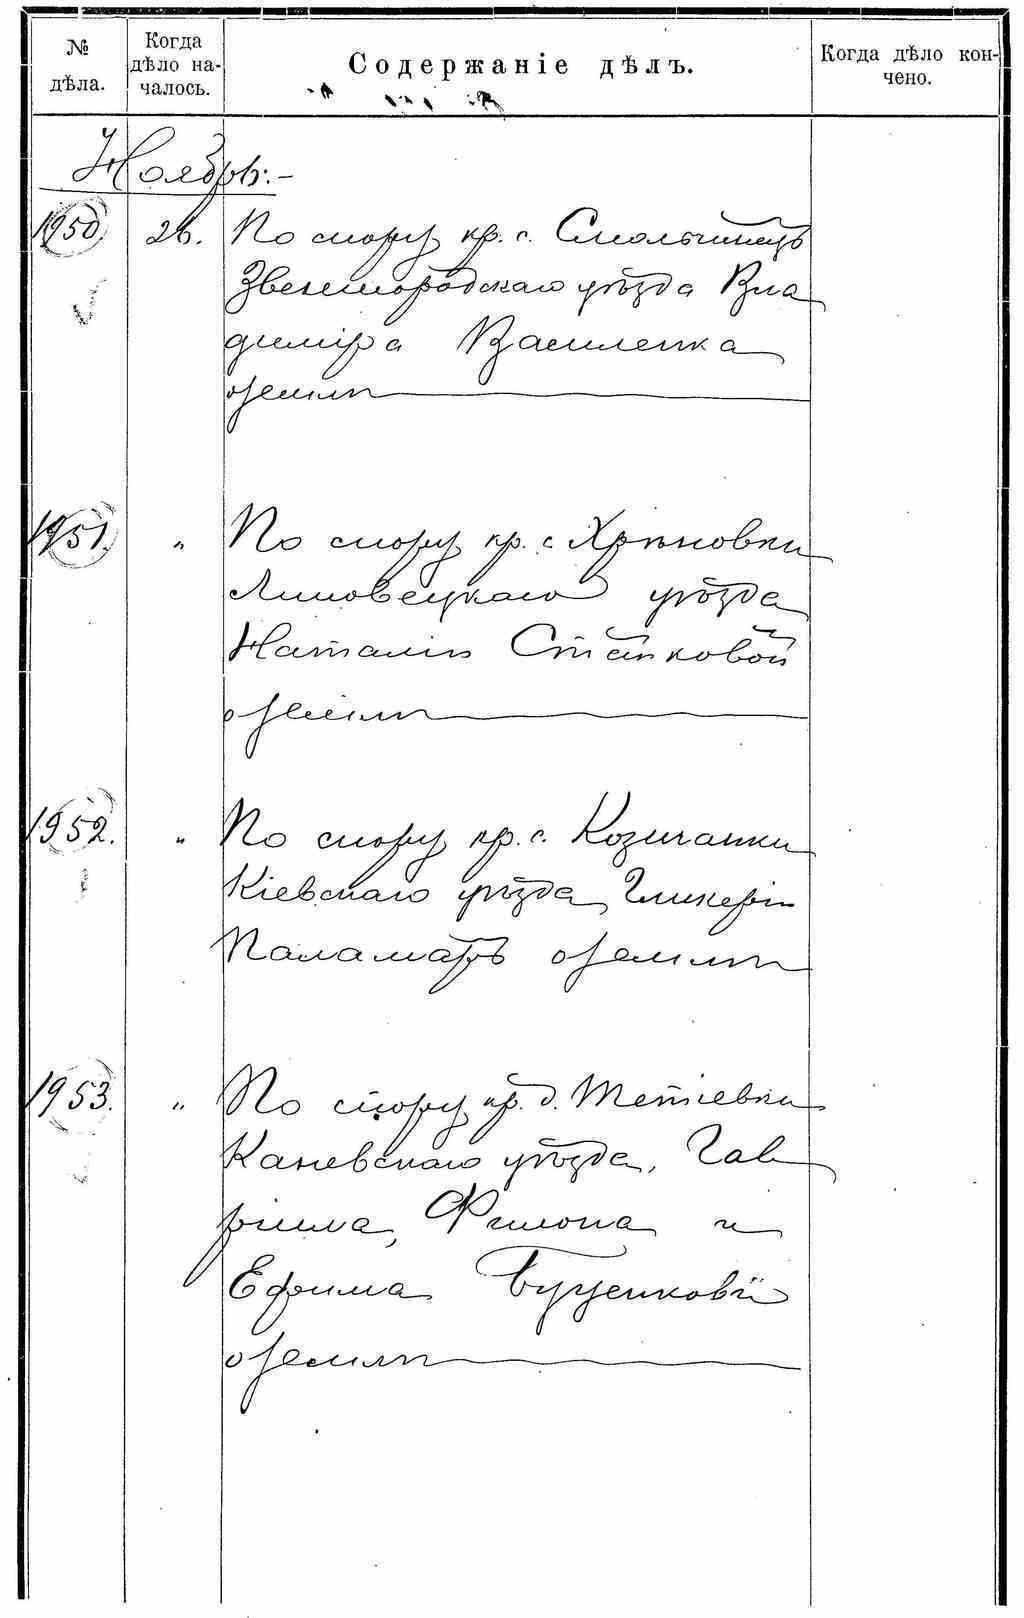 № дѣла.
Когда дѣло на-
чалось.
Содержаніе дѣлъ.
Когда дѣло кон-
чено.
Ноябрь:-
1950. 26. По спору кр. с. Смольчинецъ
Звенигородскаго уѣзда Вла
диміра Василенка
о землѣ
1951. „ По спору кр. с. Хрѣновки
Липовецкаго уѣзда
Наталіи
о землѣ
1952. „ По спору кр. с. Козичанки
Кіевскаго уѣзда Гликеріи
Паламарь о землѣ
1953. „ По спору кр. д. Тетіевки
Каневскаго уѣзда, Гав
ріила, Филона и
Ефима Буценковы
о землѣ